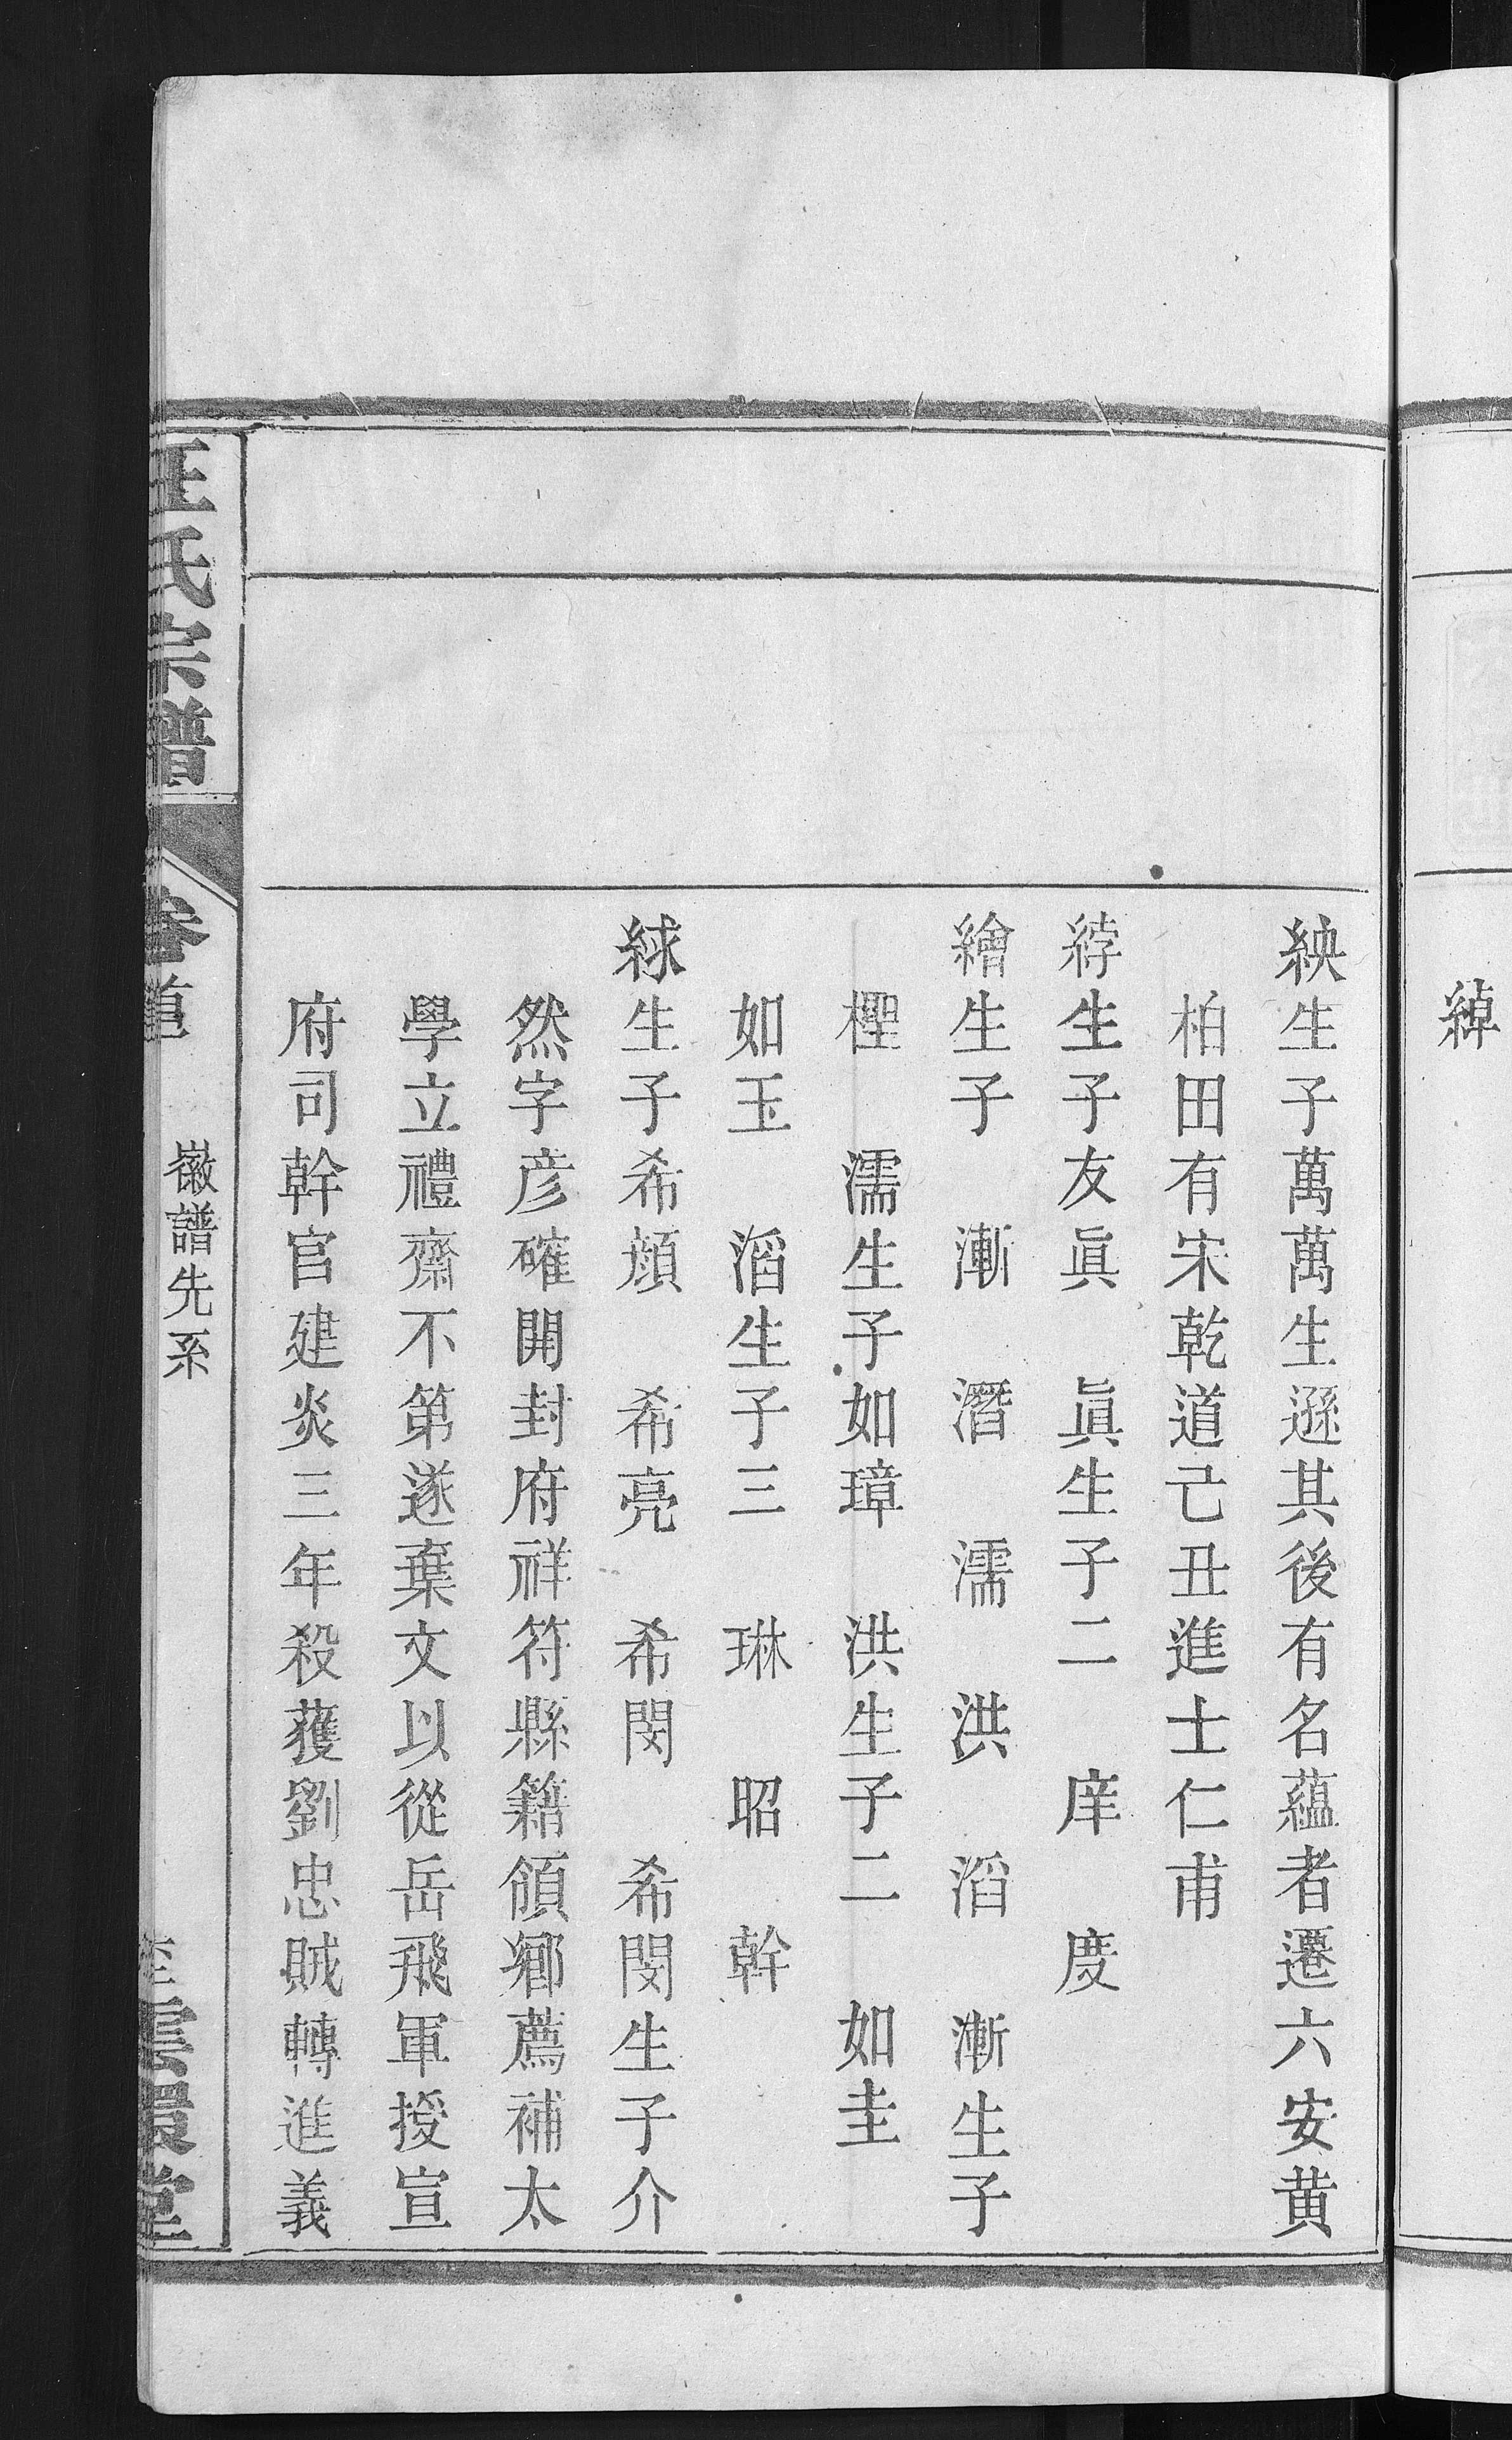 綽
紻生子萬萬生遜其後有名蘊者遷六安黄
柏田有宋乾道己丑進士仁甫
綍生子友眞 眞生子二 庠 度
繪生子 漸 潛 濡 洪 滔 漸生子
檉 濡生子如璋 洪生子二 如圭
如玉 滔生子三 琳 昭 幹
絿生子希顔 希亮 希閔 希閔生子介
然字彦確開封府祥符縣籍領鄉薦補太
學立禮齋不第遂棄文以從岳飛軍授宣
府司幹官建炎三年殺獲劉忠賊轉進義
王氏宗譜
卷首
徽譜先系
雲環堂